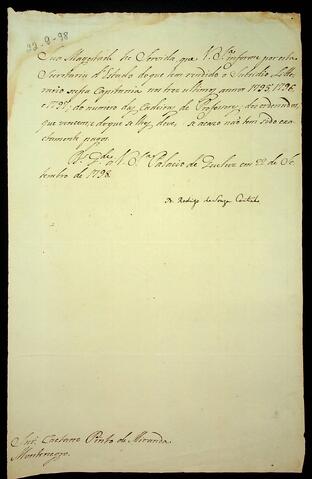 22-9-98
Sua Magestade he Servida, que V. S.ª informe por esta
Secretaria d'Estado do que tem rendido o Subsidio Litte-
rario nessa Capitania nos tres ultimos annos 1795, 1796,
e 1797; do numero das Cadeiras de Professores, dos ordenados,
que vencem, e do que se lhes deve, se acaso não tem sido exa-
ctamente pagos.
D.s G.de a V. S.ª Palacio de Queluz em 22 de Se-
tembro de 1798.
D. Rodrigo de Souza Coutinho
Snr. Caetano Pinto de Miranda
Montenegro.